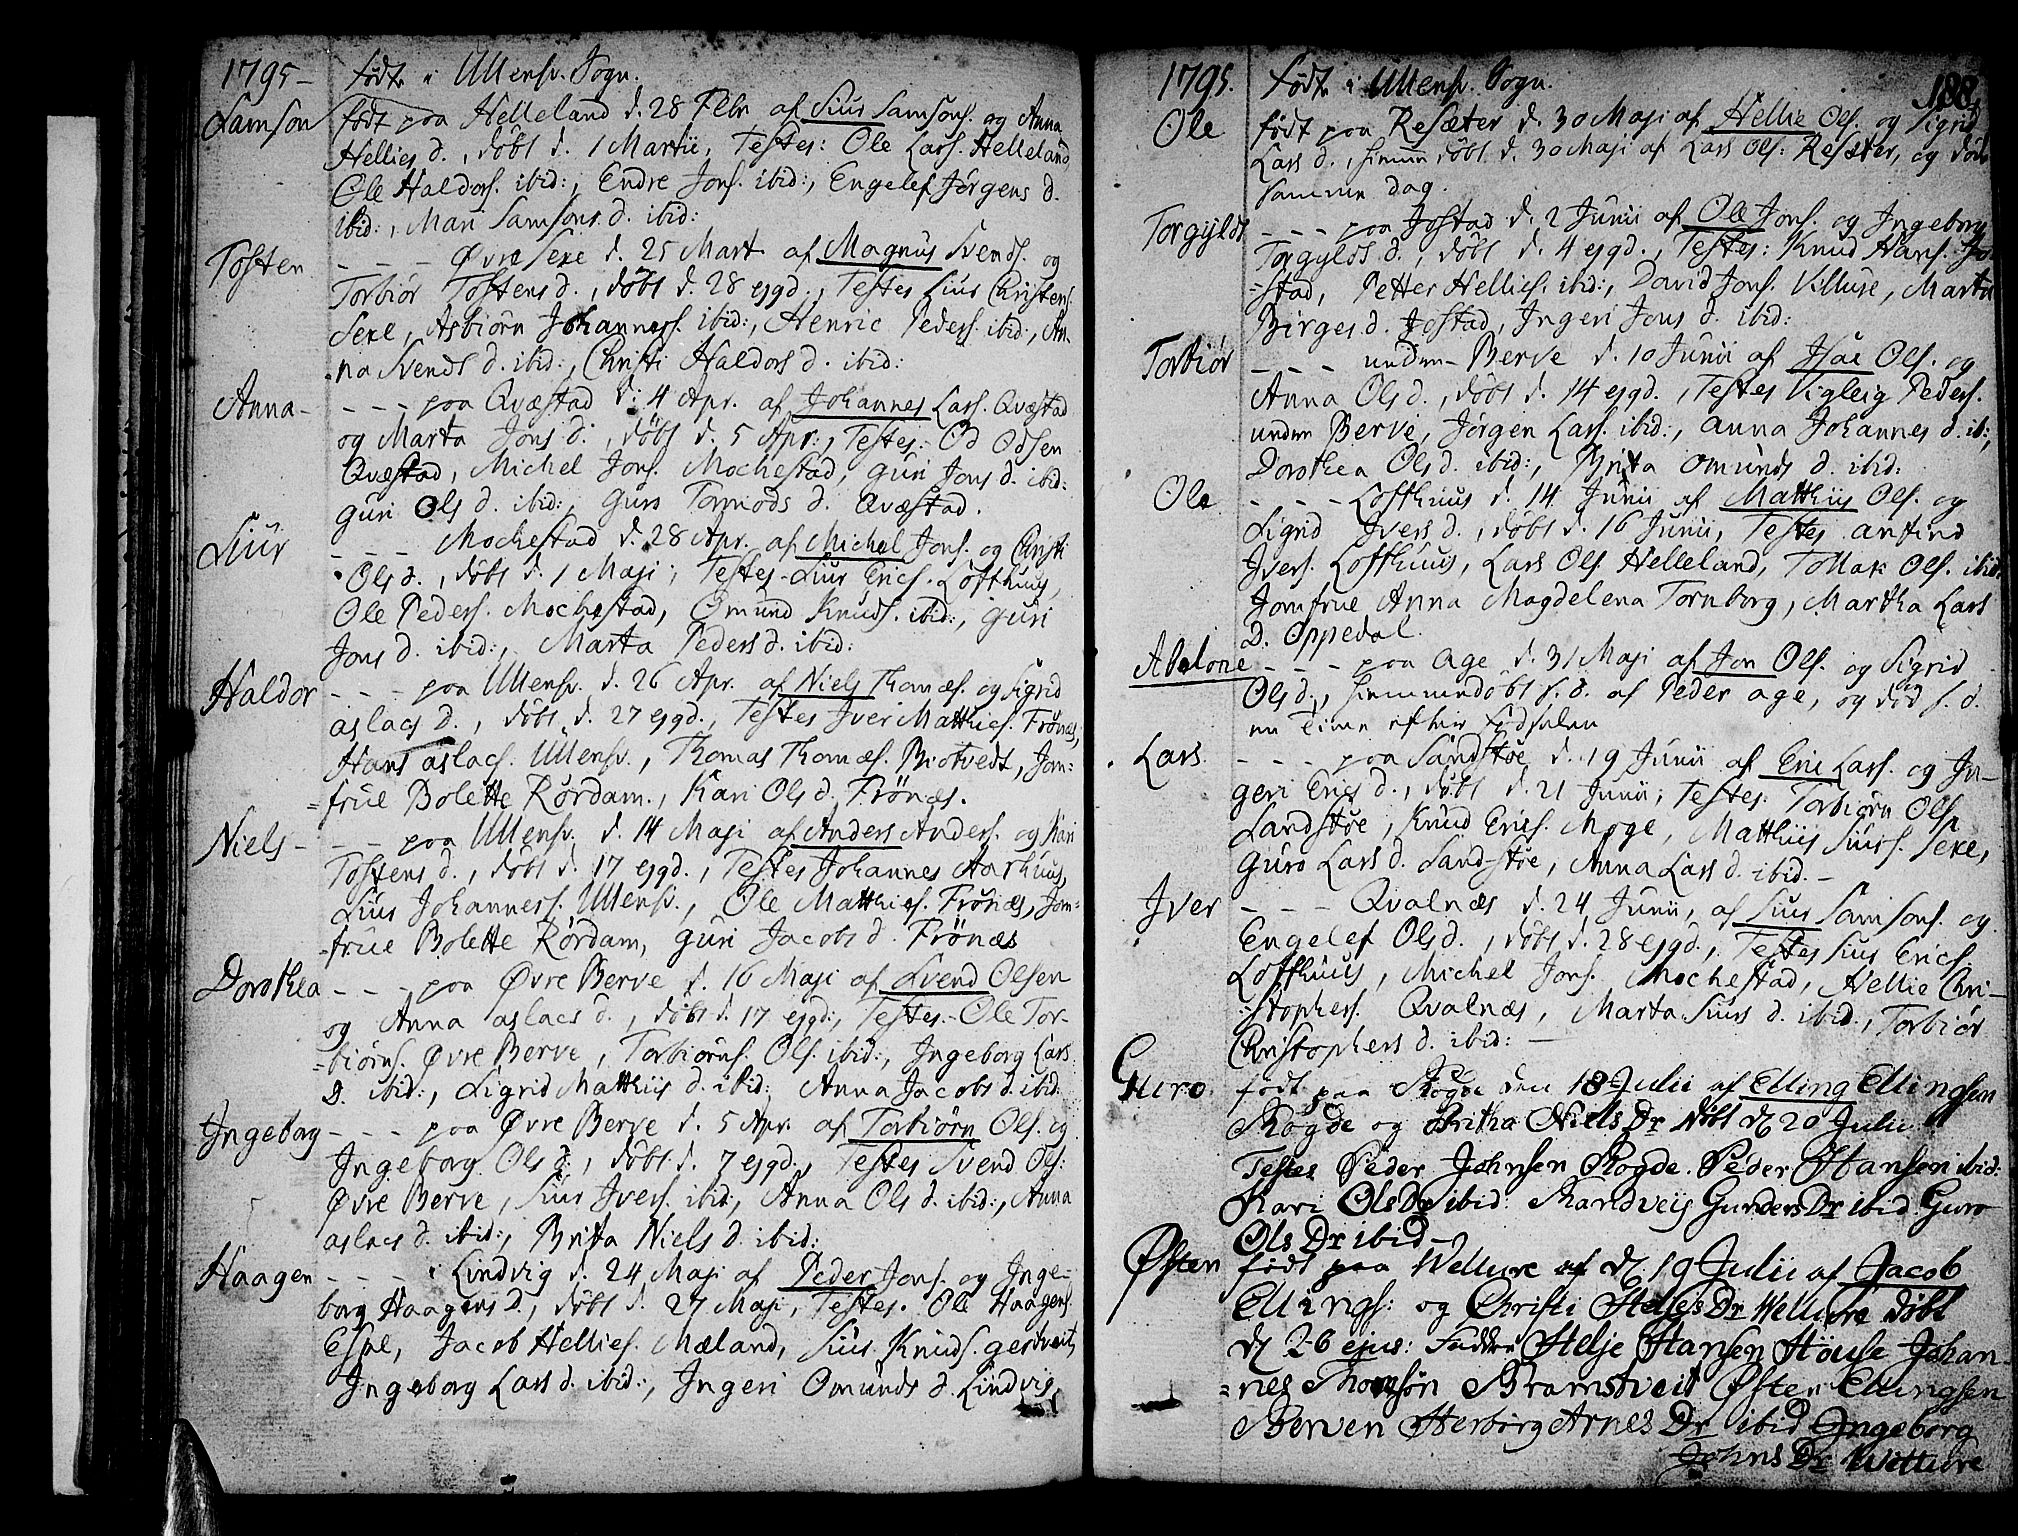 1795 - født i Ullensv. Sogn.
Samson født paa Helleland d. 28 Febr. af Siur Samsons. og Anna
Hellies d., døbt d. 1 Martii, Testes: Ole Lars. Helleland,
Ole Haldors. ibid:, Endre Jons. ibid:, Engelef Jørgens d.
ibid:, Mari Samsons d. ibid:
Tosten - - - Øvre Sexe d. 25 Mart. af Magnus Svends. og
Torbiør Tostens d., døbt d. 28 ejqd., Testes Siur Christens.
Sexe, Asbiørn Johanness. ibid:, Henric Peders. ibid:, An-
na Svends d. ibid:, Christi Haldors d. ibid:
Anna - - - - paa Qvæstad d: 4 Apr. af Johannes Lars. Qvæstad
og Marta Jons d., døbt d. 5 Apr:, Testes: Od Odsen
Qvæstad, Michel Jons. Mochestad, Guri Jons d. ibid:
Guri Ols d. ibid:, Guro Tormods d. Qvæstad.
Siur - - - Mochestad d. 28 Apr. af Michel Jons. og Christi
Ols d., døbt d. 1 Maji; Testes - Siur Erics. Lofthuus,
Ole Peders. Mochestad, Omund Knuds. ibid:, Guri
Jons d. ibid:, Marta Peders d. ibid:
Haldor - - - paa Ullensv. d. 26 Apr. af Niels Thomæs. og Sigrid
Aslacs d., døbt d. 27 ejqd., Testes Iver Matthies. Frönæs,
Hans Aslacs. Ullensv., Thomas Thomæs. Biotvedt, Jom=
=frue Bolette Rørdam., Kari Ols d. Frönæs.
Niels - - - paa Ullensv. d. 14 Maji af Anders Anders. og Kari
Tostens d., døbt d. 17 ejqd., Testes Johannes Aarhuus,
Siur Johanness. Ullensv., Ole Matthies. Frönæs, Jom=
=frue Bolette Rørdam, Guri Jacobs d. Frönæs
Dorothea - - - paa Øvre Berve d. 16 Maji af Svend Olsen
og Anna Aslacs d., døbt d. 17 ejqd:, Testes. - Ole Tor-
=biørns. Øvre Berve, Torbiørns. Ols. ibid:, Ingeborg Lars
D. ibid:, Sigrid Matthiis d. ibid: Anna Jacobs d. ibid.
Ingeborg - - - paa Øvre Berve d. 5 Apr. af Torbiørn Ols. og
Ingeborg Ols d:, døbt d. 7 ejqd., Testes Svend Ols:
Øvre Berve, Siur Ivers. ibid:, Anna Ols d. ibid:, Anna
Aslacs d. ibid:, Brita Niels d. ibid:
Haagen - - - i Lindvig d. 24 Maji af Peder Jons. og Inge-
borg Haagens d., døbt d. 27 Maji, Testes. Ole Haagens.
Espe, Jacob Hellies. Mæland, Siur Knuds. Gerdtveit,
Ingeborg Lars d. ibid:, Ingeri Omunds d. Lindvig
1795. født i Ullensv. Sogn. 188
Ole født paa Resæter d. 30 Maji af Hellie Ols. og Sigrid
Lars d., hiemmedøbt d. 30 Maji af Lars Ols: Resæter, og død
samme Dag.
Torgyldt - - - paa Jostad d. 2 Junii af Ole Jons. og Ingeborg
Torgylds d., døbt d. 4 ejqd., Testes: Knud Hans. Jo=
=stad, Petter Hellies. ibid:, David Jons. Villure, Marta
Børges d. Jostad, Ingeri Jons d. ibid:
Torbiør - - - unden-Berve d. 10 Junii af Isac Ols. og
Anna Ols d., døbt d. 14 ejqd., Testes Vigleig Peders.
unden Berve, Jørgen Lars. ibid:, Anna Johannes d. ib:,
Dorothea Ols d. ibid:, Brita Omunds d. ibid:
Ole - - - Lofthuus d. 14 Junii af Matthiis Ols. og
Sigrid Ivers d., døbt d. 16 Junii, Testes Anfind
Ivers. Lofthuus, Lars Ols. Helleland, Tollak Ols. ibid:
Jomfrue Anna Magdelena Tornborg, Martha Lars
D. Oppedal.
Abelone - - - paa Age d. 31 Maji af Jon Ols. og Sigrid
Ols d., hiemmedøbt s. d. af Peder Age, og død s. d.
en Time efter Fødselen
Lars. - - - paa Sandstøe d. 19 Junii af Eric Lars. og In-
geri Erics d., døbt d. 21 Junii; Testes: Torbiørn Ols.
Sandstøe, Knud Erics. Moge, Matthiis Siurs. Sexe,
Guro Lars d. Sandstøe, Anna Lars d. ibid. -
Iver - - - Qvalnæs d. 24 Junii, af Siur Samsons. og
Engelef Ols d., døbt d. 28 ejqd., Testes Siur Erics.
Lofthuus, Michel Jons. Mochestad, Hellie Chri-
=stophers. Qvalnæs, Marta Siurs d. ibid:, Torbiør
Christophers d. ibid: -
Guro. født paa Skogde den 18de Julii af Elling Ellingsen
Skogde og Britha Niels Dr døbt d 20 Julii
Testes Peder Johnsen Skogde. Peder Hansen ibid:
Kari Ols Dr ibid: Randveig Gunders Dr ibid Guro
Ols Dr ibid -
Østen født paa Wellure d 19 Julii af Jacob
Ellings: og Christi Helges Dr Wellure døbt
d 26 ejus: Fadder Helje Hansen House Johan-
=nes Thomsøn Bramstveit Østen Ellingsen
Berven Herborg Arnes Dr ibid Ingeborg
Johns Dr Wellure